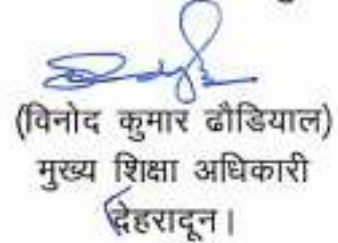 (विनोद कुमार ढौडियाल)
मुख्य शिक्षा अधिकारी
देहरादून।